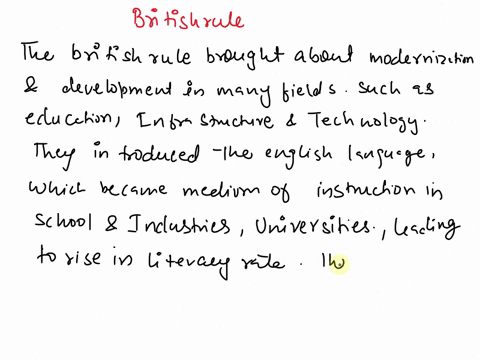 British rule
The british rule brought about modernization
& development in many fields. such as
education, Infrastructure & Technology.
They introduced the english language,
which became medium of instruction in
School & Industries, Universities., leading
to rise in literacy rate.